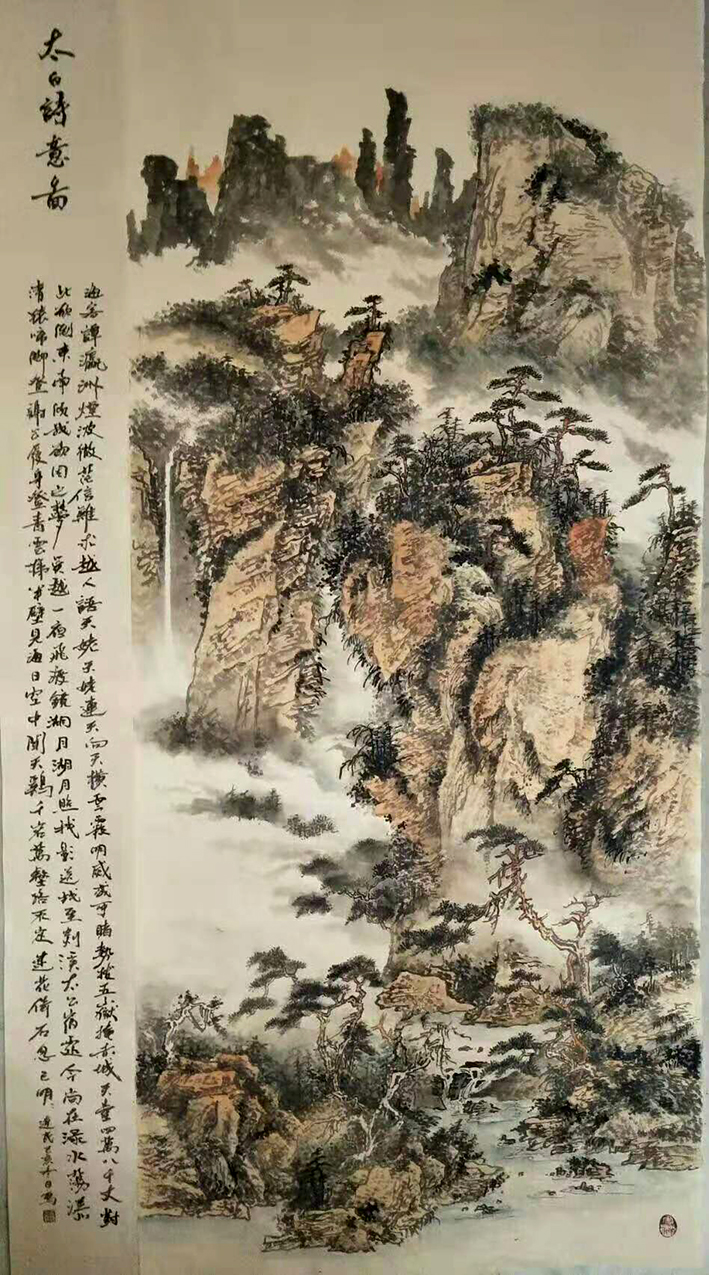 太白詩意圖
海客譚瀛洲煙波微茫信難求越人語天姥天姥連天向天橫雲霞明滅或可睹勢拔五嶽掩赤城天臺四萬八千丈對
此欲倒東南傾我欲因之夢吳越一夜飛渡鏡湖月湖月照我影送我至剡溪太公宿處今尚在淥水蕩漾
清猿啼腳登謝公屐身登青雲梯半壁見海日空中聞天鷄千岩萬壑路不定迷花倚石忽已明